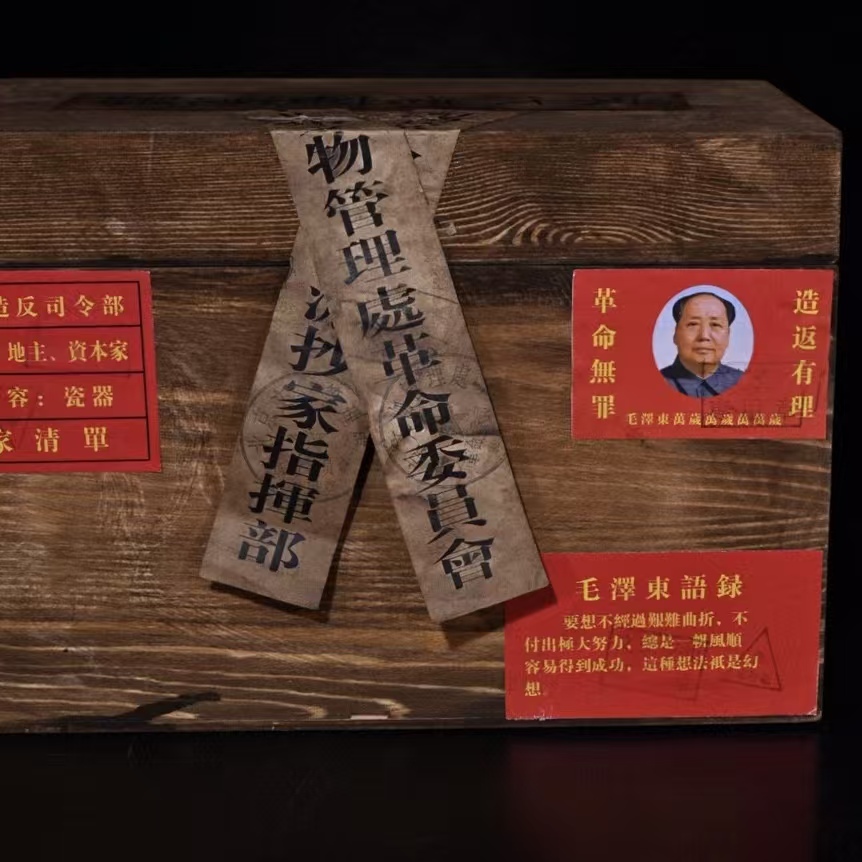 物管理處革命委員會
抄家指揮部
造反司令部
地主、資本家
容：瓷器
家清單
造返有理
革命無罪
毛澤東萬歲萬歲萬萬歲
毛澤東語録
要想不經過艱難曲折，不
付出極大努力，總是一風順
容易得到成功，這種想法祇是幻
想